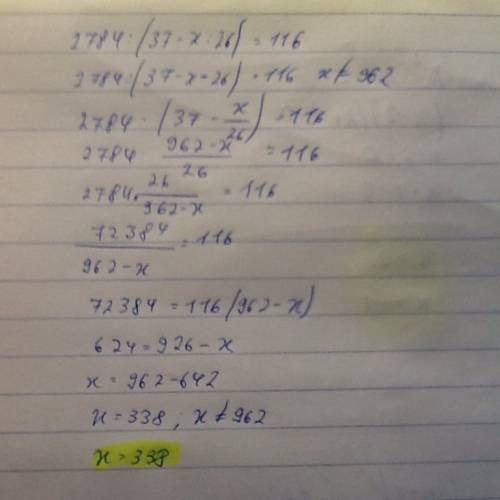 2784:(37-x:26)=116
2784:(37-x÷26)=116 x≠962
2784 : (37 - x/26) = 116
2784 : (962-x)/26 = 116
2784 · 26/(962-x) = 116
72384/(962-x) = 116
72384 = 116(962-x)
624=926-x
x = 962-642
x = 338 ; x≠962
x = 338